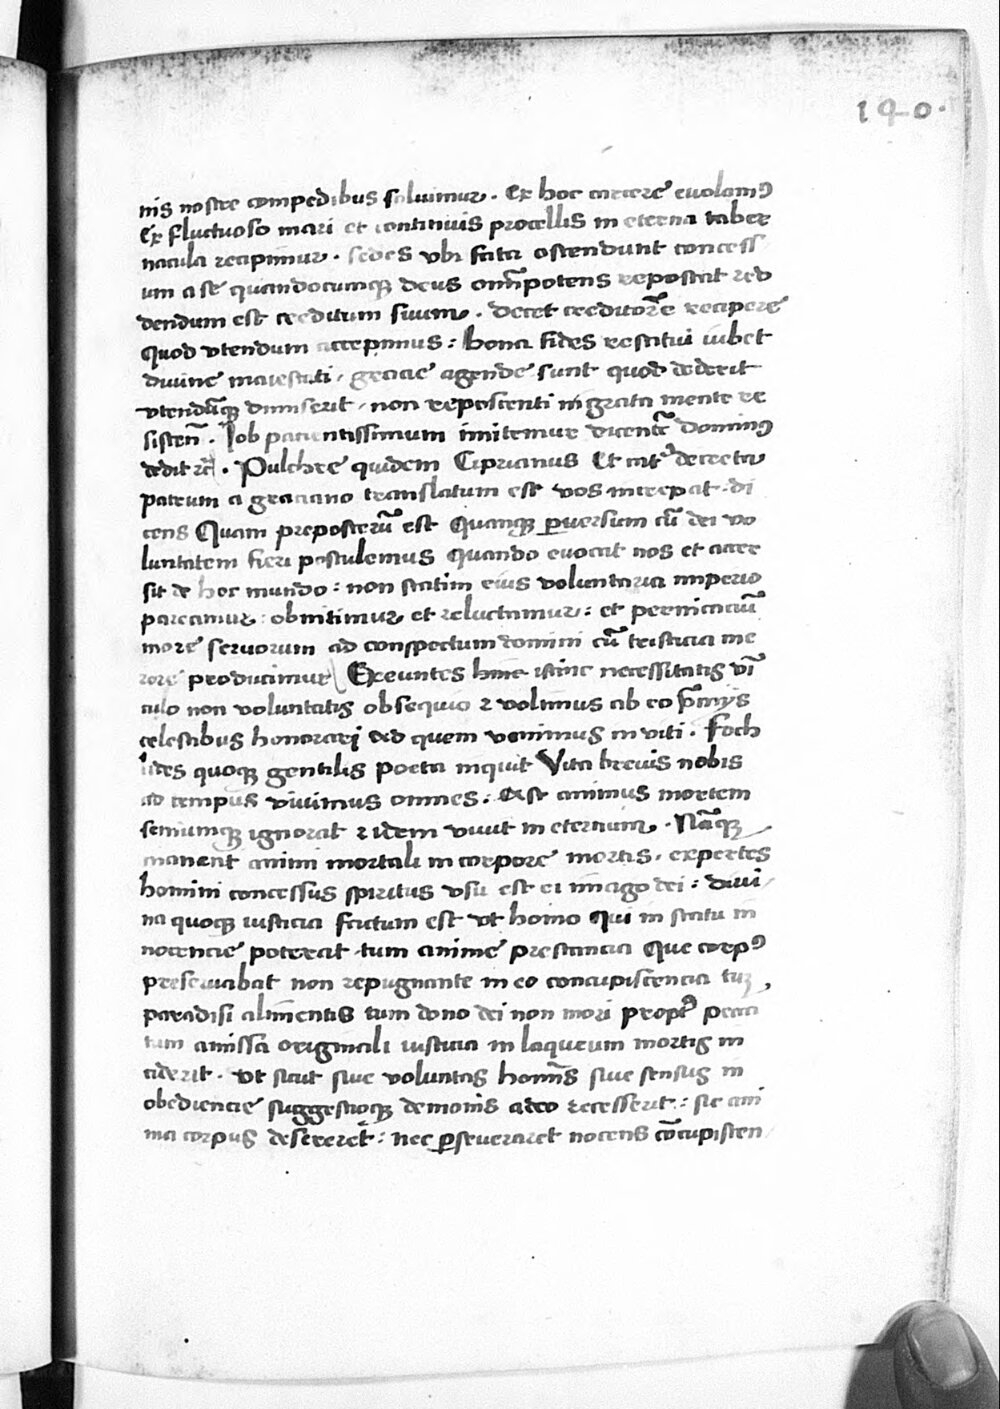 140.
nis nostre compedibus soluimur. Ex hoc carcere euolamꝰ
Ex fluctuoso mari et continuis procellis in eterna taber
nacula recipimur. sedes vbi fata ostendunt concess
um a se quandocumqꝫ deus om̄potens reposcat red
dendum est creditum suum. decet creditorē recipere
quod vtendum accepimus: bona fides restitui iubet
diuine maiestati, gracie agende sunt quod dederit
vtendūqꝫ dimiserit, non reposcenti ingrata mente re
sistēn. Iob pacientissimum imitemur dicent̄ Dominꝰ
dedit rc̄. Pulchre quidem Ciprianus Et int̉ decreta
patrum a graciano translatum est vos increpat. di
cens Quam preposterū est Quamqꝫ ꝑuersum cū dei vo
luntatem fieri postulemus quando euocat nos et acce
sit de hoc mundo: non statim eius voluntaria imperio
pareamur: obnitimur et reluctamur: et peruicaciū
more seruorum ad conspectum domini cū tristicia me
rore producimur Exeuntes hinc istinc necessitatis vī
culo non voluntatis obsequio ⁊ volumus ab eo p̄mijs
celestibus honorari Ad quem venimus inuiti. Foch
ides quoqꝫ gentilis poeta inquit Vita breuis nobis
ad tempus viuimus omnes: Ast animus mortem
seniumqꝫ ignorat ⁊ idem viuit in eternum. Nāqꝫ
manent animi mortali in corpore mortis, expertes
homini concessus spiritus vsu est ei imago dei: diui
na quoqꝫ iusticia factum est vt homo qui in statu in
nocencie poterat tum anime prestancia Que corpꝰ
preseruabat non repugnante in eo concupiscencia tuꝫ,
paradisi alimentis tum dono dei non mori propt̉ pecca
tum amissa originali iusticia in laqueum mortis in
ciderit. Vt sicut siue voluntas homīs siue sensus in
obediencie suggestioqꝫ demonis adeo recesserit: sic ani
ma corpus desereret: nec ꝑseueraret nocens cōcupiscen